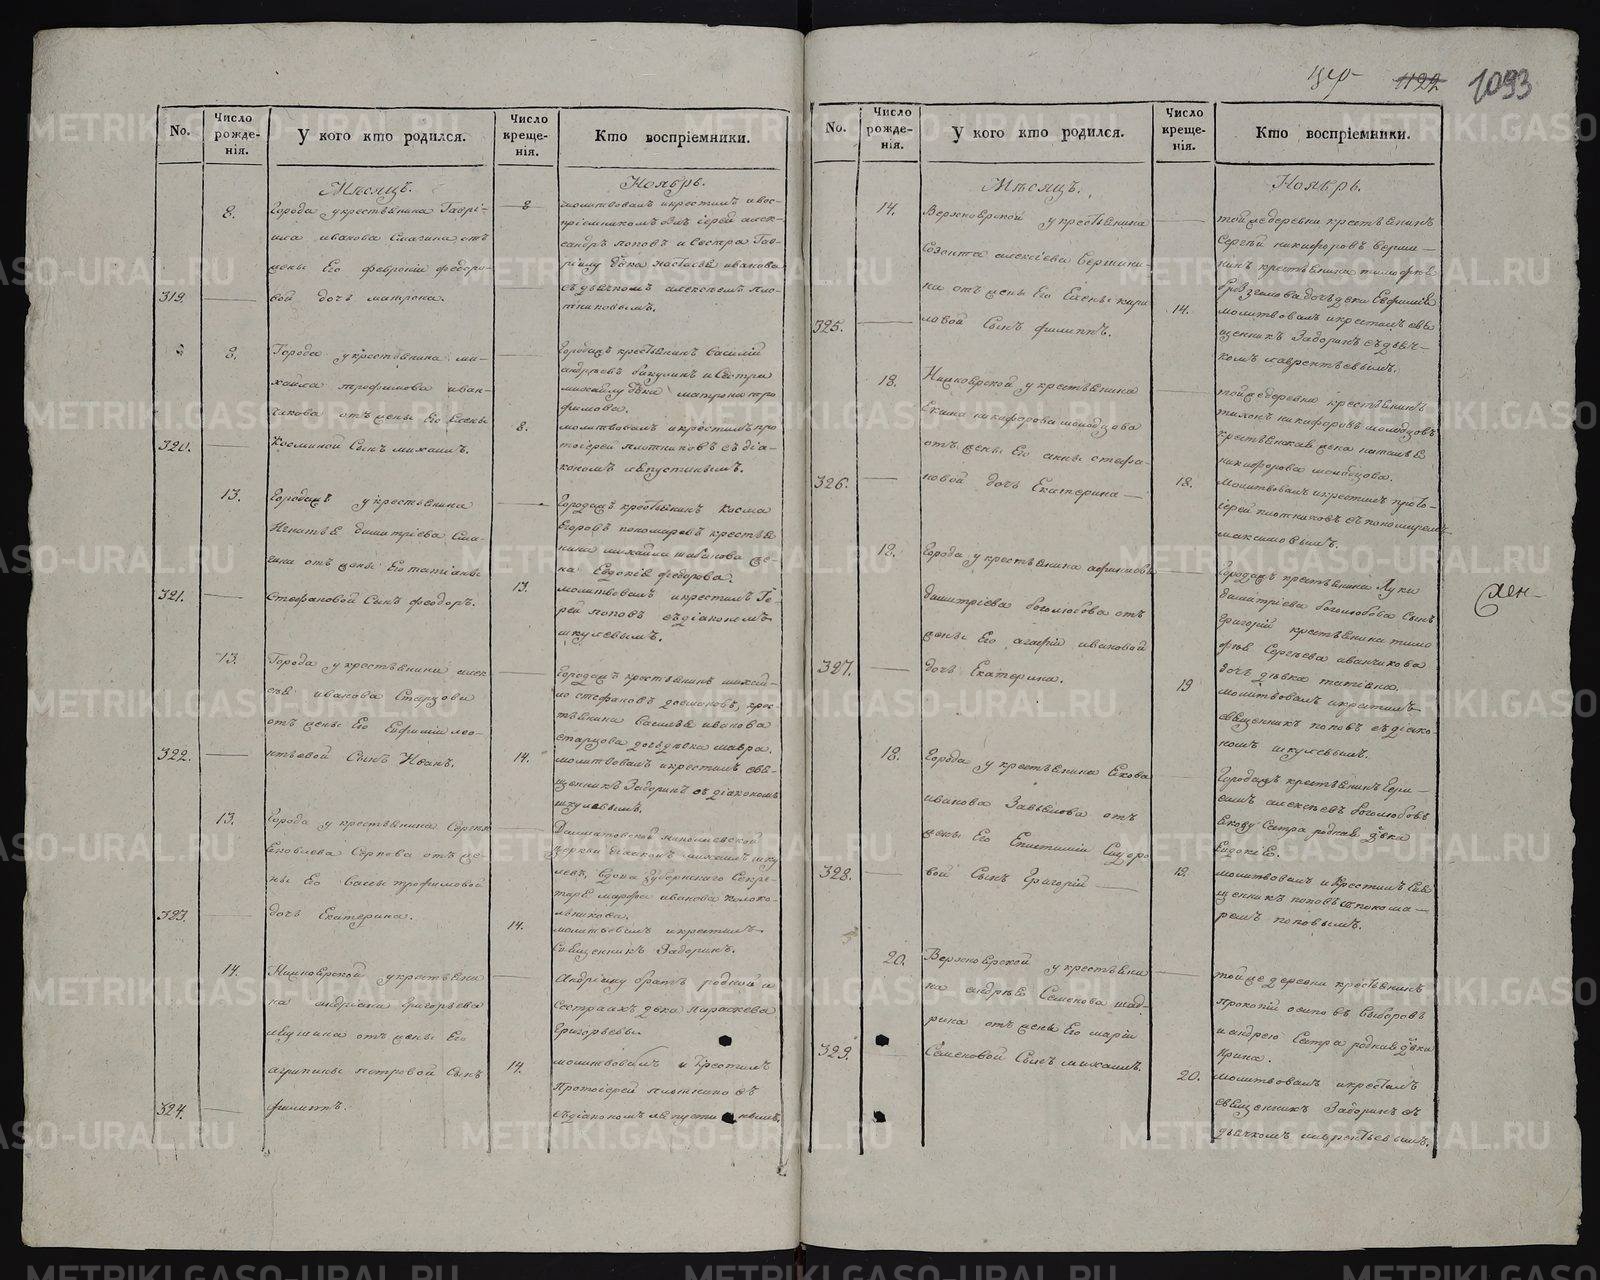 1093
No.
Число рожде-нія.
У кого кто родился.
Число креще-нія.
Кто воспріемники.
Мѣсяцъ.
Ноябрь.
8.
Города у крестьянина Гаврі-
ила иванова Смагина отъ
жены Его февроніи феодоро-
319.
вой дочь матрона.
8
молитвовалъ и крестилъ и вос-
пріемникомъ былъ іерей алек-
сандръ поповъ и Сестра Гав-
ріилу дѣвка настасья иванова
съ дьячкомъ алексѣемъ пло-
тниковымъ.
8.
Города у крестьянина ми-
хаила трофимова иван-
чикова отъ жены Его Елены
320.
Козминой Сынъ михаилъ.
Городецъ крестьянинъ василій
андреевъ и Сестра
михайлу дѣвка матрона тро
фимова.
8.
молитвовалъ и крестилъ про
тоіерей плотниковъ съ діа-
кономъ
13.
Городецъ у крестьянина
Игнатья димитріева Сма-
гина отъ жены Его татіаны
321.
Стефановой Сынъ феодоръ.
Городецъ крестьянинъ Косма
Егоровъ пономаревъ крестья
нина михайла шабанова же-
на Евдокія федорова.
13.
молитвовалъ и крестилъ Іе-
рей поповъ съ діакономъ
шкулевымъ.
13.
Города у крестьянина алек-
сѣя иванова Старцова
отъ жены Его Евфиміи лео-
322.
нтьевой Сынъ Иванъ.
Городецъ крестьянинъ михай-
ло стефановъ крес-
тьянина василья иванова
старцова дочь дѣвка мавра.
14.
молитвовалъ и крестилъ свя-
щенникъ Задоринъ съ діакономъ
шкулевымъ.
13.
Города у крестьянина Сергея
Яковлева Серпова отъ же-
ны Его вассы трофимовой
323.
дочь Екатерина.
Далматовской николаевской
церкви діаконъ михаилъ шку
левъ, вдова Губернскаго Секре-
таря марфа иванова Колоко-
льникова.
14.
молитвовалъ и крестилъ
Священникъ Задоринъ.
14.
Нижнеярской у крестьяни
на андріана григорьева
отъ жены Его
агрипины петровой Сынъ
324.
филиппъ.
Андріану братъ родной и
Сестра ихъ дѣвка параскева
Григорьевы.
14.
молитвовалъ и Крестилъ
Протоіерей плотниковъ
съ діакономъ
No.
Число рожде-нія.
У кого кто родился.
Число креще-нія.
Кто воспріемники.
Мѣсяцъ.
Ноябрь.
14.
Верхноярской у крестьянина
Созонта алексіева Вершини-
на отъ жены Его Елены кири
325.
ловой Сынъ филиппъ.
той же деревни крестьянинъ
Сергѣй никифоровъ верши-
нинъ крестьянина тимофея
дочь дѣвка Евфимія
14.
молитвовалъ и крестилъ свя
щенникъ Задоринъ съ дьяч-
комъ лаврентьевымъ.
18.
Нижноярской у крестьянина
Екима никифорова молодцова
отъ жены Его анны стефа-
326.
новой дочь Екатерина
той же деревни крестьянинъ
тихонъ никифоровъ молодцовъ
крестьянская жена наталья
никифорова
18.
Молитвовалъ и крестилъ прото-
іерей плотниковъ съ пономаремъ
максимовымъ.
18.
Города у крестьянина
димитріева боголюбова отъ
жены Его агафіи ивановой
327.
дочь Екатерина.
Городецъ крестьянина Луки
димитріева боголюбова Сынъ
григорій крестьянина тимо
фея Сергѣева иванчикова
дочь дѣвка татіана.
19
молитвовалъ и крестилъ
священникъ поповъ съ діако
номъ шкулевымъ.
18.
Города у крестьянина Якова
иванова Завьялова отъ
жены Его Епистиміи Сидоро
328.
вой Сынъ Григорій
Городецъ крестьянинъ
алексѣевъ боголюбовъ
Якову Сестра родная дѣвка
Евдокія.
19.
молитвовалъ и Крестилъ Свя
щенникъ поповъ съ понома-
ремъ поповымъ.
20.
Верхноярской у крестьяни
на андрея Семенова шад-
рина отъ жены Его маріи
329.
Семеновой Сынъ михаилъ.
той же деревни крестьянинъ
прокопій осиповъ
и андрею Сестра родная дѣвка
Ирина.
20.
молитвовалъ и крестилъ
священникъ Задоринъ съ
дьячкомъ лаврентьевымъ.